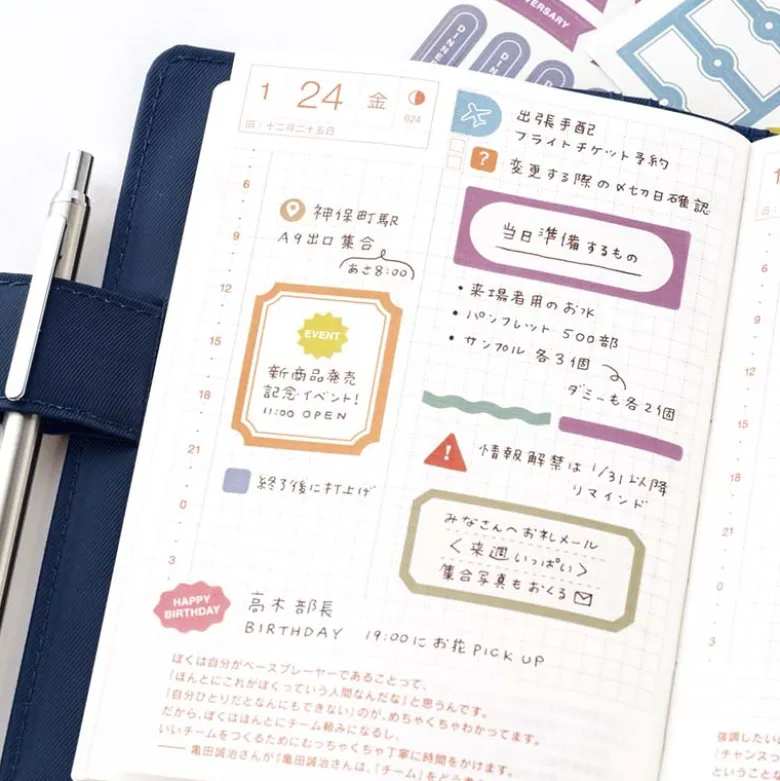 ANNIVERSARY
DINNER
DIN
DIN
1 24 金
024
旧:十二月二十五日
出張手配
フライトチケット予約
?
変更する際の〆切日確認
6
9
12
15
18
21
0
3
神保町駅
A9出口集合
あさ8:00
EVENT
新商品発売
記念イベント!
11:00 OPEN
終了後に打上げ
当日準備するもの
・来場者用のお水
・パンフレット 500部
・サンプル 各3個
ダミーも各2個
!
情報解禁は 1/31以降
リマインド
みなさんへお礼メール
<来週いっぱい>
集合写真もおくる
HAPPY
BIRTHDAY
高木部長
BIRTHDAY 19:00にお花PICK UP
ぼくは自分がベースプレーヤーであることって、
「ほんとにこれがぼくっていう人間なんだな」と思うんです。
「自分ひとりだとなんにもできない」のが、めちゃくちゃわかってます。
だから、ぼくはほんとにチーム頼みになるし、
いいチームをつくるためにむっちゃくちゃ丁寧に時間をかけます。
── 亀田誠治さんが『亀田誠治さんは、「チーム」をどう
1
12
15
18
21
0
3
強調したいの
『チャンスっ
ということに